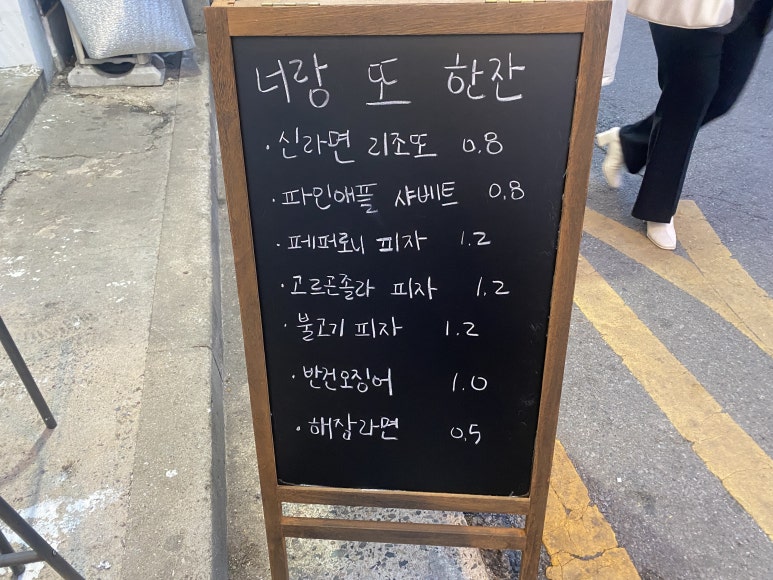 너랑 또 한잔
· 신라면 리조또 0.8
· 파인애플 샤베트 0.8
· 페퍼로니 피자 1.2
· 고르곤졸라 피자 1.2
· 불고기 피자 1.2
· 반건오징어 1.0
· 해장라면 0.5